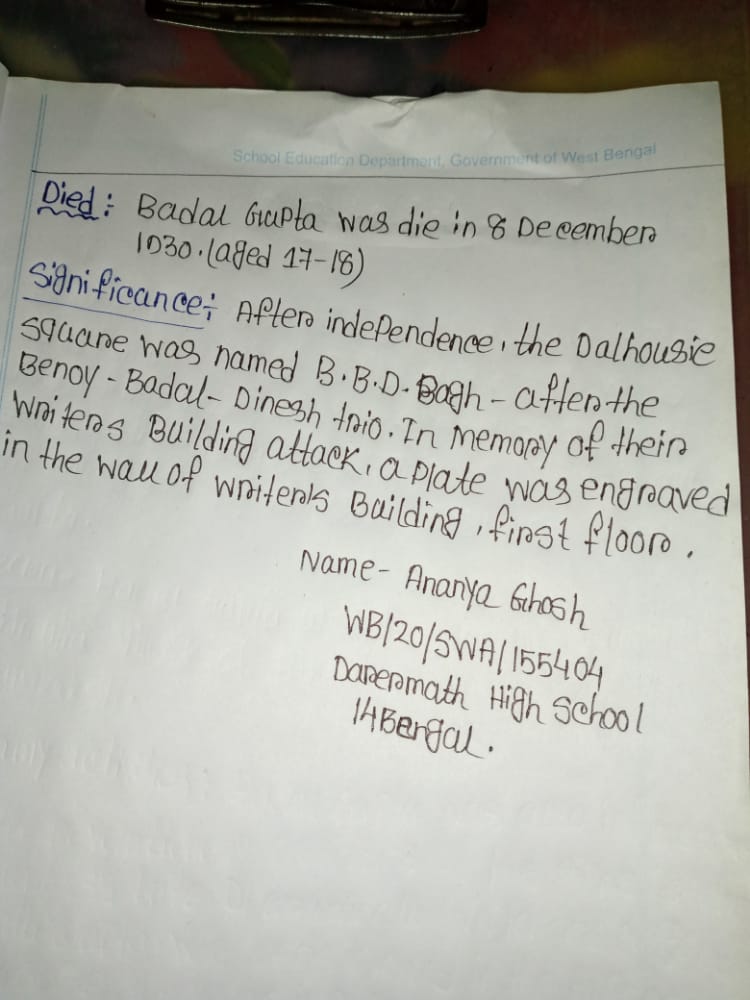 School Education Department, Government of West Bengal
Died: Badal Gupta was die in 8 December
1930. (aged 17-18)
Significance: After independence, the Dalhousie
square was named B.B.D. Bagh - after the
Benoy - Badal - Dinesh trio. In memory of their
Writers Building attack, a plate was engraved
in the wall of writers Building, first floor.
Name - Ananya Ghosh
WB/20/SWA/155404
Darermath High School
14 Bengal.